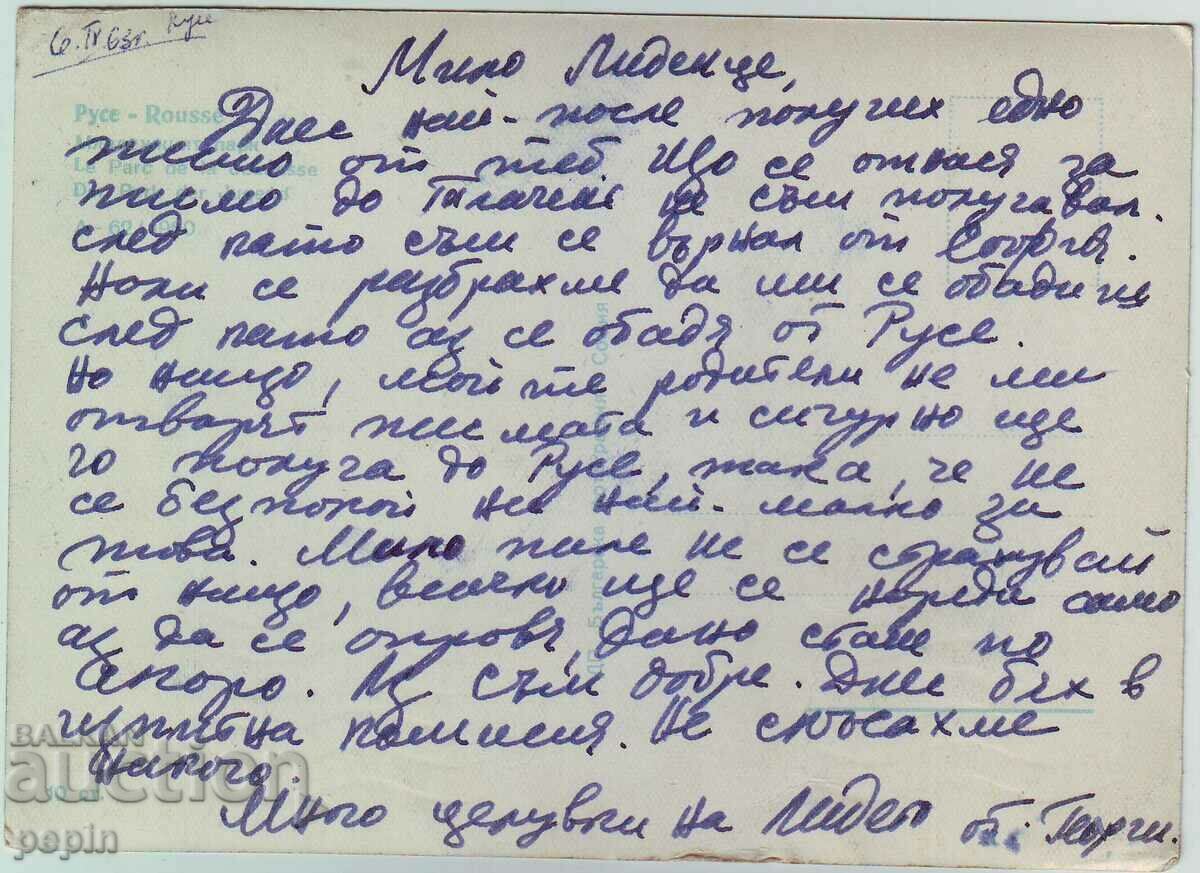 6.IV.63г. Русе
Мило Лиденце,
Днес най-после получих едно
писмо от теб Що се отнася за
писмо до не съм получавал.
след като съм се върнал от София.
Нали се разбрахме да ми се обадиш
след като аз се обадя от Русе.
Но нищо, мойте родители не ми
отварят писмата и сигурно ще
го получа до Русе, така, че не
се безпокой ни най-малко за
това. Мило пиле не се страхувай
от нищо, всичко ще се нареди само
аз да се оправя, дано стане по
скоро. Аз съм добре. Днес бях в
изпитна комисия. Не скъсахме
никого.
Много целувки на Лиден от Георги.
Русе - Rousse
Le Parc de la Jeunesse
10 ст.
BALKAN
auction
pepin